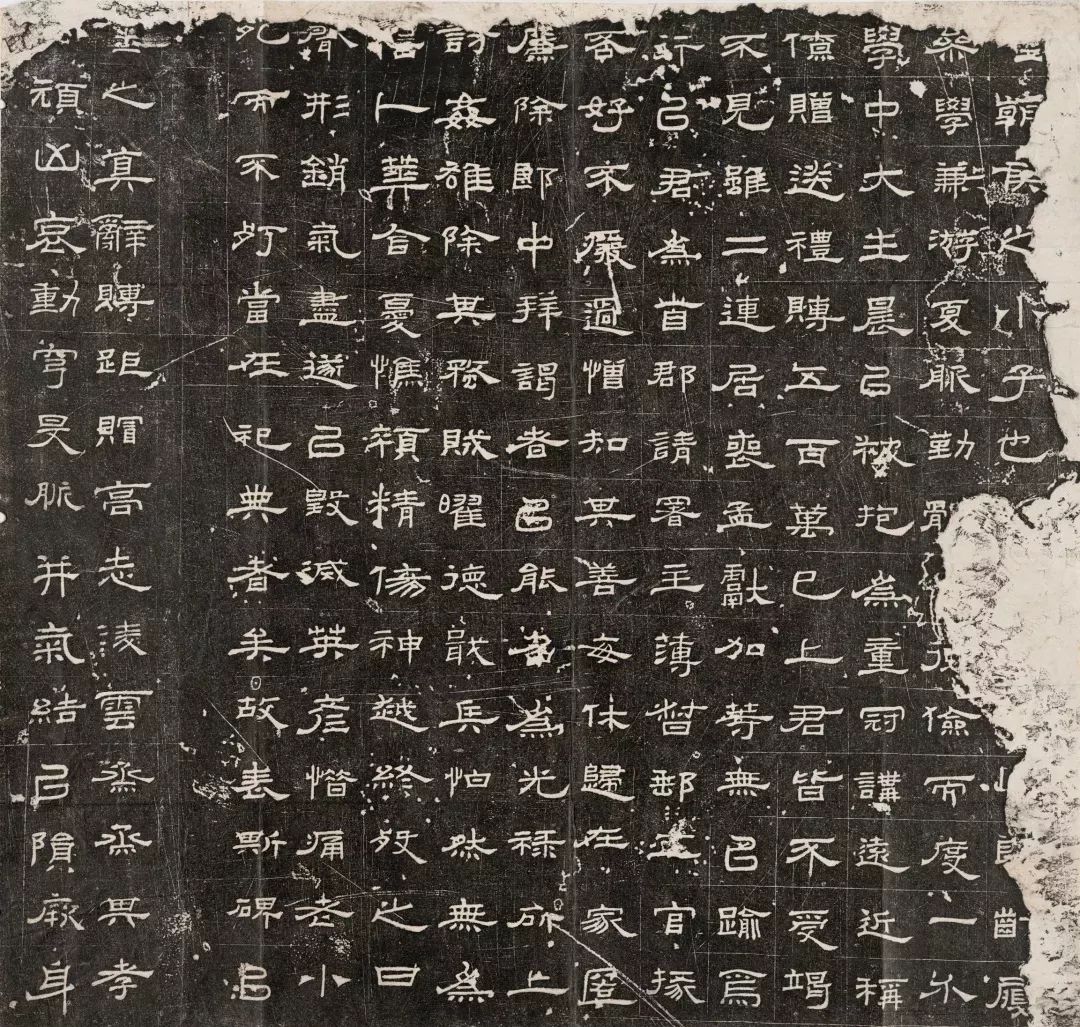 朝侯之小子也郎齒履
參學兼游夏服勤體儉而度一介
學中大主晨以被抱為童冠講遠近稱
僚贈送禮賻五百萬已上君皆不受竭
不見雖二連居喪孟獻加等無以踰焉
行己君為首郡請署主薄督郵五官掾
否好不廢過憎知其善每休歸在家匿
廉除郎中拜謁者以能名為光祿所上
討姦雄除其務賊曜德戢兵怕然無為
葬合憂憔顇精傷神越終歿之日
形銷氣盡遂以毀滅英彥惜痛老小
死而不朽當在祀典者矣故表斯碑以
之真辭賻距賵高志凌雲烝烝其孝
凶哀動穹旻脈并氣結以隕厥身